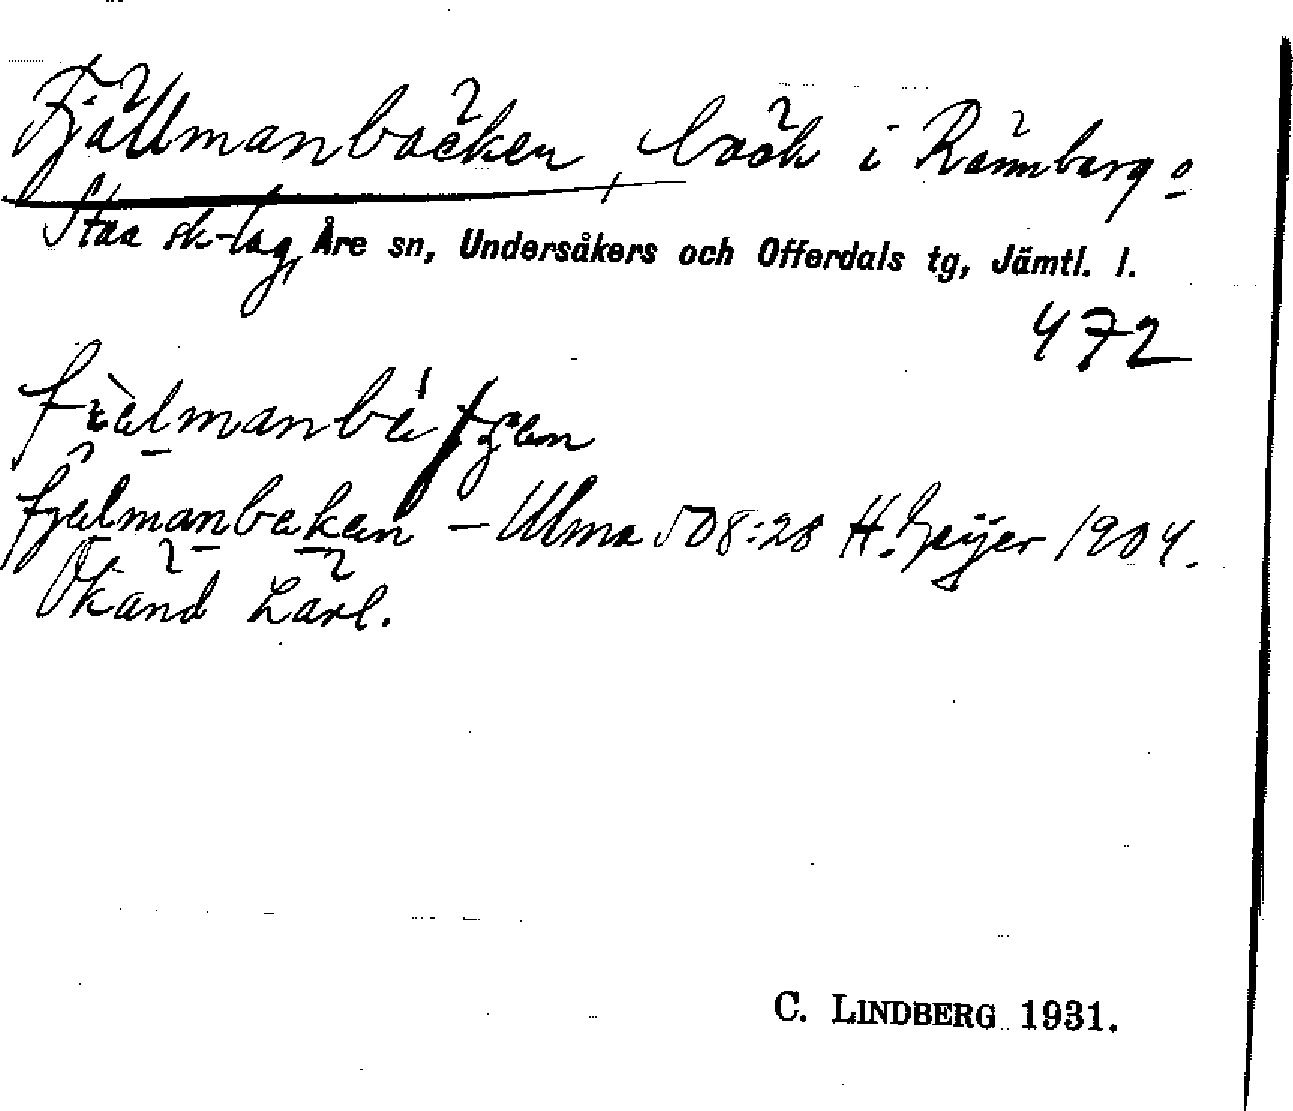 Fjällmanbäcken, bäck i Rännberg o
Staa sk-lag, Åre sn, Undersåkers och Offerdals tg, Jämtl. l.
472
fjälmanbäken – Ulma 508:28 H. Geijer 1904.
Okänd Lärl.
C. LINDBERG 1931.